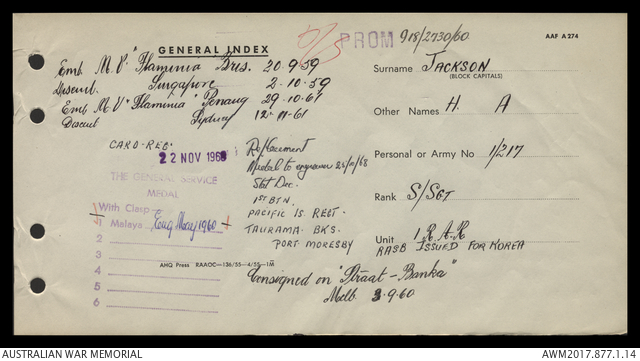 GENERAL INDEX
PROM 918/2730/60
AAF A 274
Emb. M.V. "Flaminia" Bris. 20.9.59
Disemb. Singapore 2.10.59
Emb M.V "Flaminia" Penang 29.10.61
Disemb Sydney 12.11.61
Surname JACKSON
(BLOCK CAPITALS)
Other Names H. A
Personal or Army No 1/217
Rank S/SGT
Unit 1 R.A.R
RASB ISSUED FOR KOREA
CARD-REC.
22 NOV 1968
THE GENERAL SERVICE
MEDAL
With Clasp
1 Malaya Enq May/1960
2
3
4
5
6
Replacement
Medal to engraver 25/11/68
Stat Dec.
1ST BTN.
PACIFIC IS. REGT.
TAURAMA. BKS.
PORT MORESBY
AHQ Press RAAOC—136/55—4/55—1M
Consigned on "Straat-Banka"
Melb 3.9.60
AUSTRALIAN WAR MEMORIAL
AWM2017.877.1.14